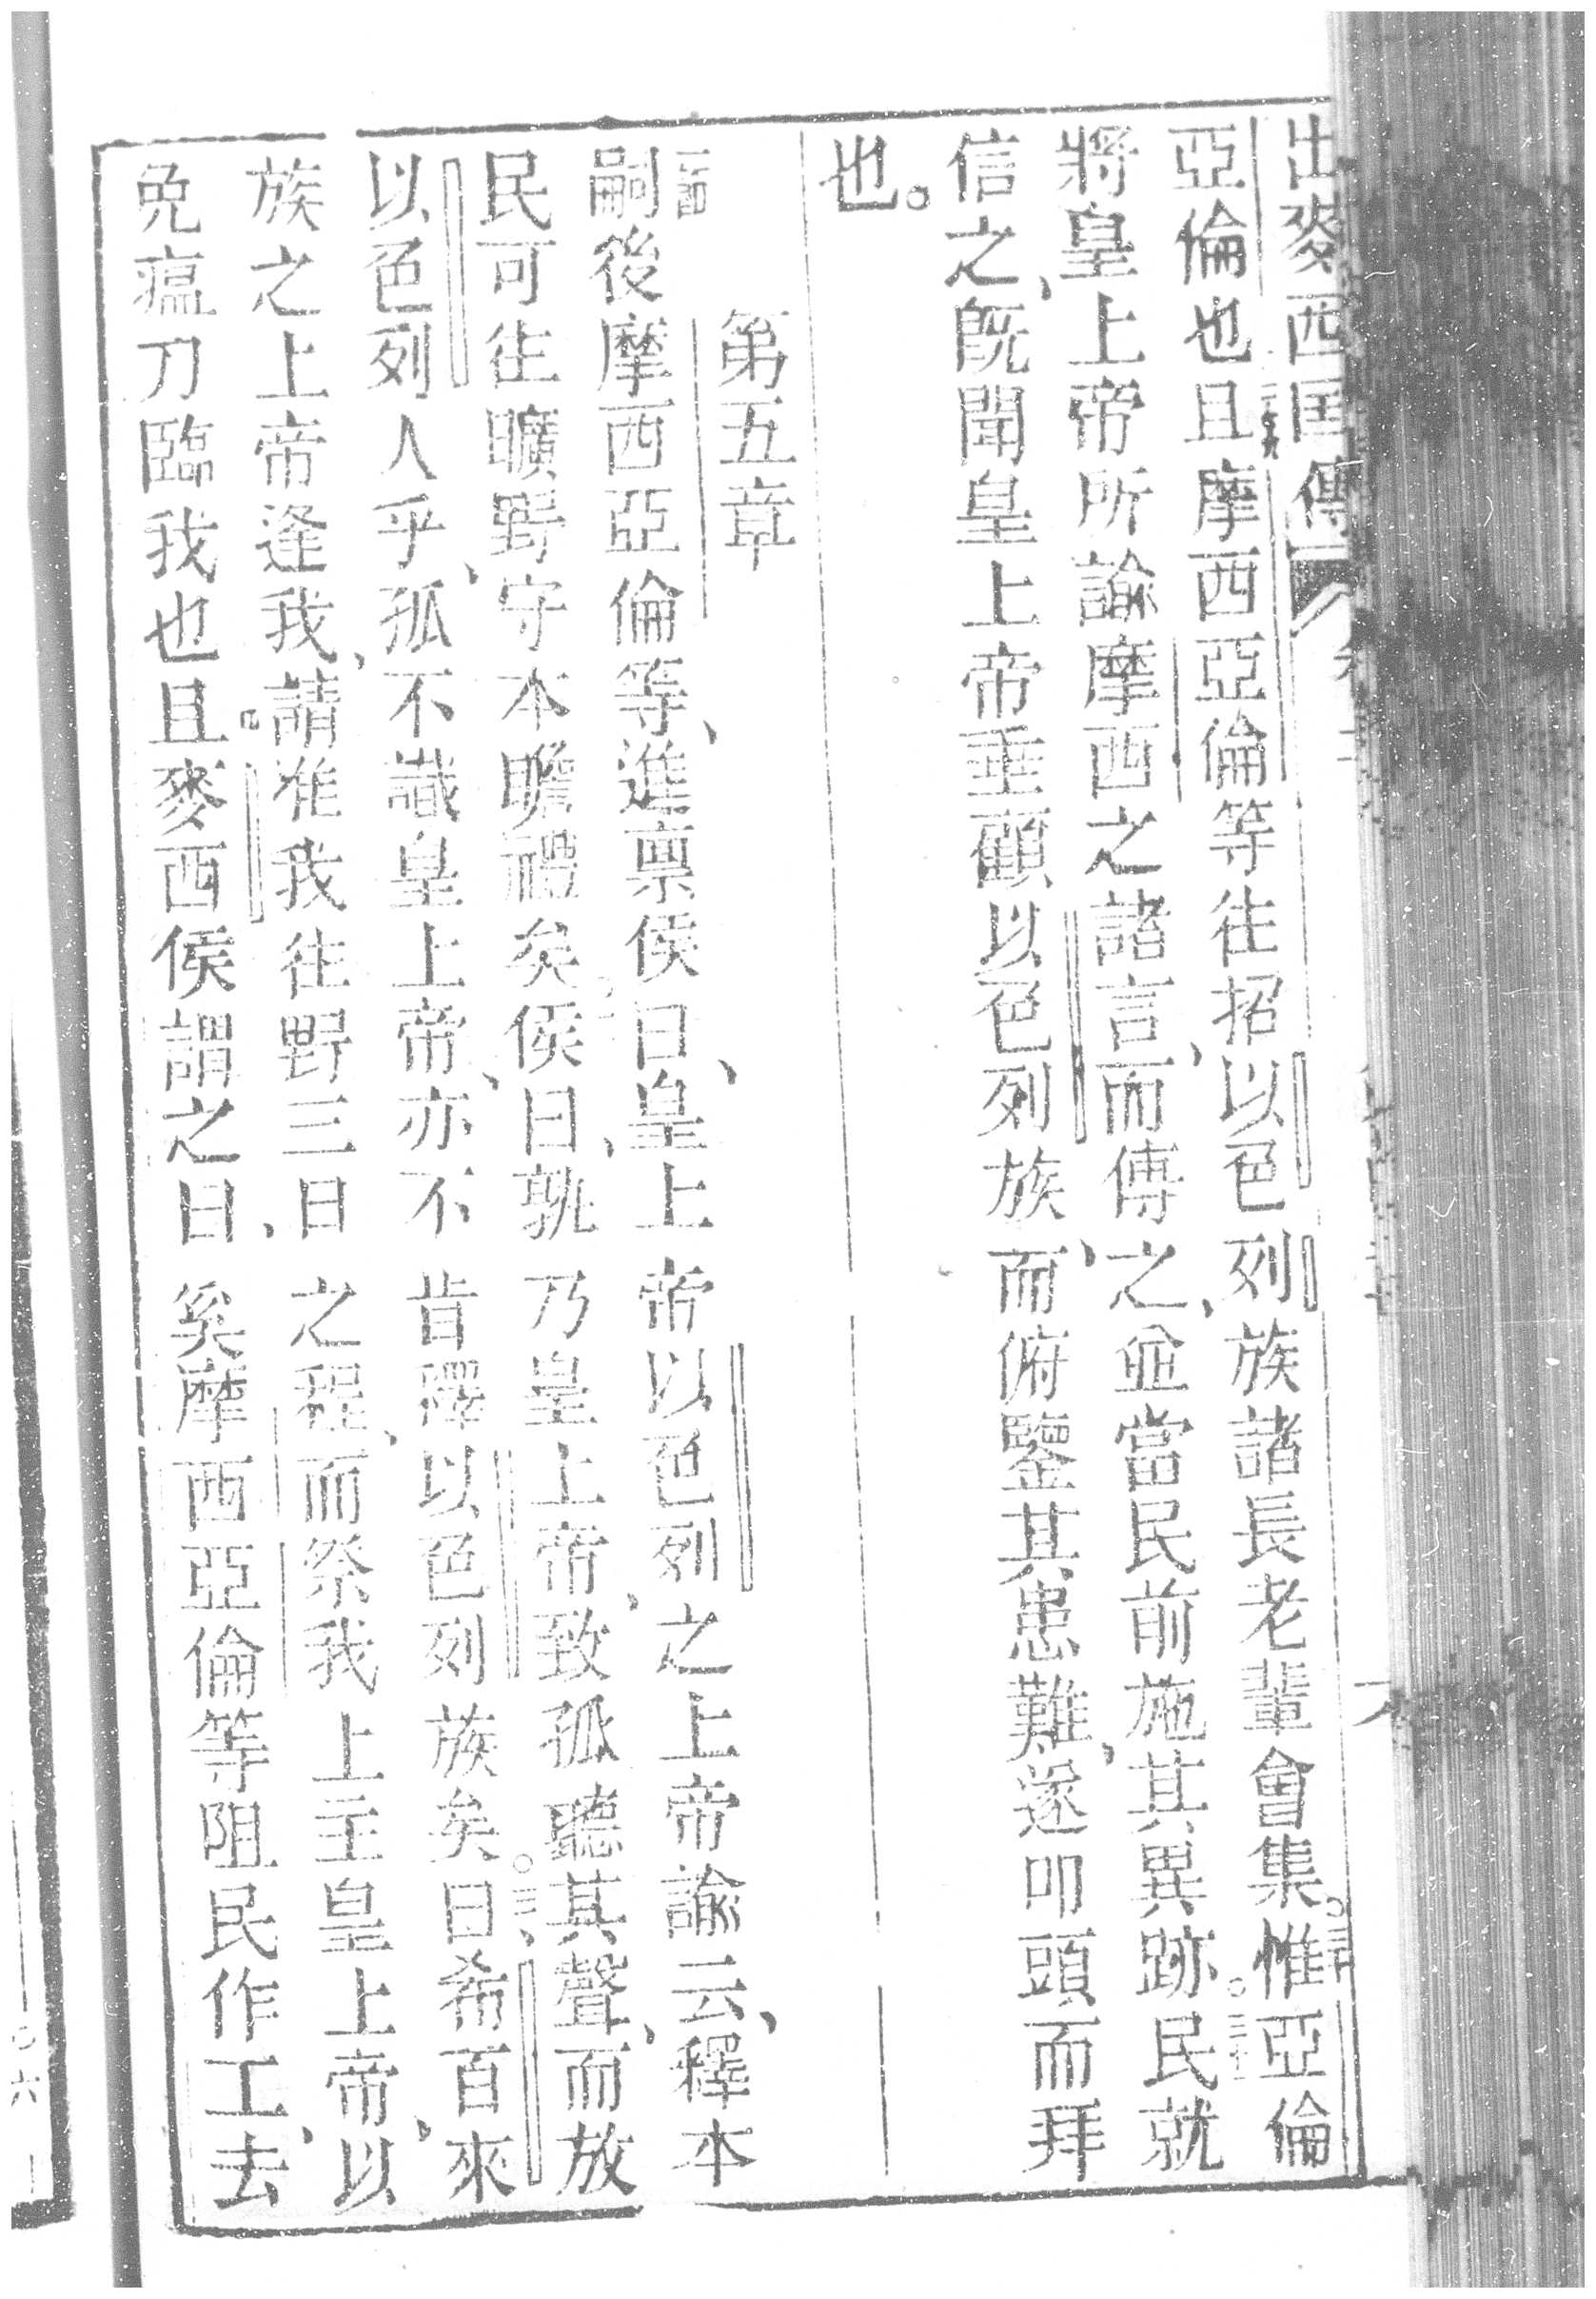 出麥西国傳
亞倫也且摩西亞倫等徃招以色列族諸長老輩會集。三十惟亞倫
將皇上帝所諭摩西之諸言、而傳之、並當民前施其異跡。三十一民就
信之、既聞皇上帝垂顧以色列族、而俯鑒其患難、遂叩頭而拜
也。
第五章
嗣後摩西亞倫等、進禀侯曰、皇上帝以色列之上帝諭云、釋本
民可徃曠野守本瞻禮矣、侯曰、孰乃皇上帝、致孤聽其聲、而放
以色列人乎、孤不識皇上帝、亦不肯釋以色列族矣。三曰希百來
族之上帝逢我、請准我徃野三日之程、而祭我上主皇上帝、以
免瘟刀臨我也四且麥西侯謂之曰、奚摩西亞倫等阻民作工、去